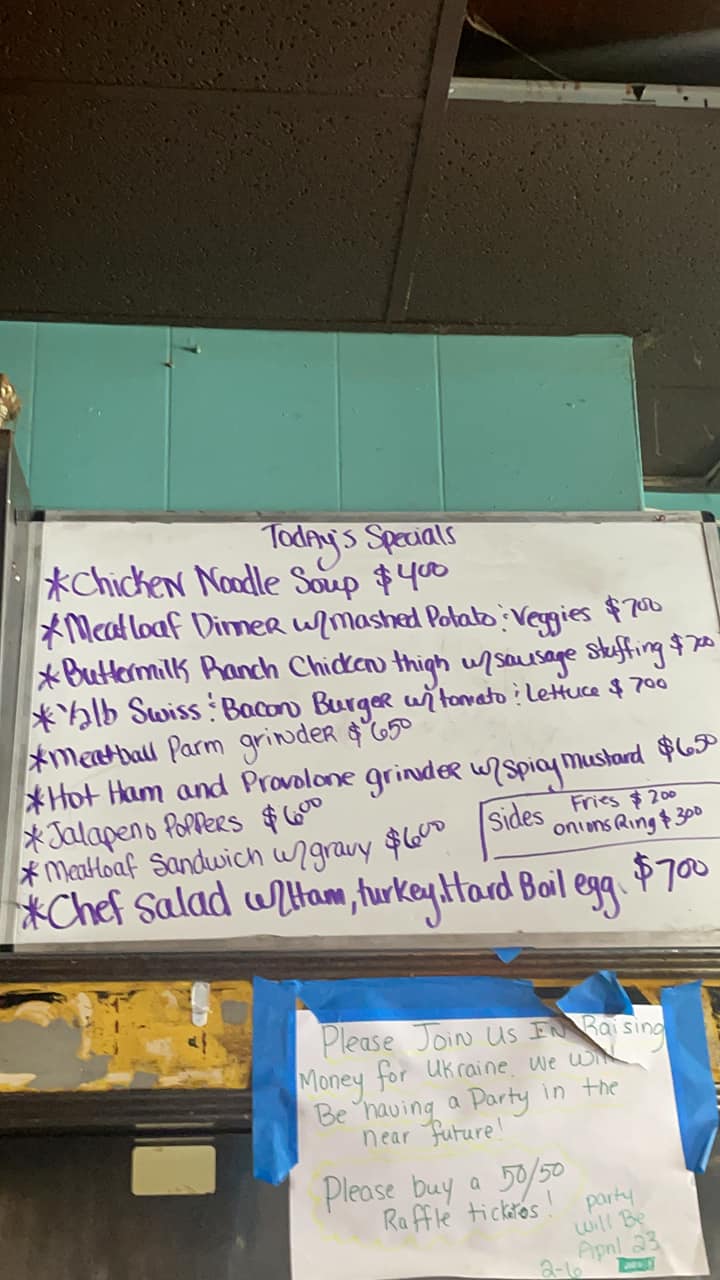 TodAy's Specials
*Chicken Noodle Soup $400
*Meatloaf Dinner w/mashed Potato & Veggies $700
*Buttermilk Ranch Chicken thigh w/sausage Stuffing $700
*1/2lb Swiss & Bacon Burger w/tomato & Lettuce $700
*meatball Parm grinder $650
*Hot Ham and Provolone grinder w/spicy mustard $650
*Jalapeno Poppers $600
*Meatloaf Sandwich w/gravy $600
Sides Fries $200
onions Ring $300
*Chef Salad w/Ham, turkey, Hard Boil egg. $700
Please Join Us IN Raising
Money for Ukraine. We
Be having a Party in the
near future!
Please buy a 50/50
Raffle tickets!
party
will Be
April 23
2-6